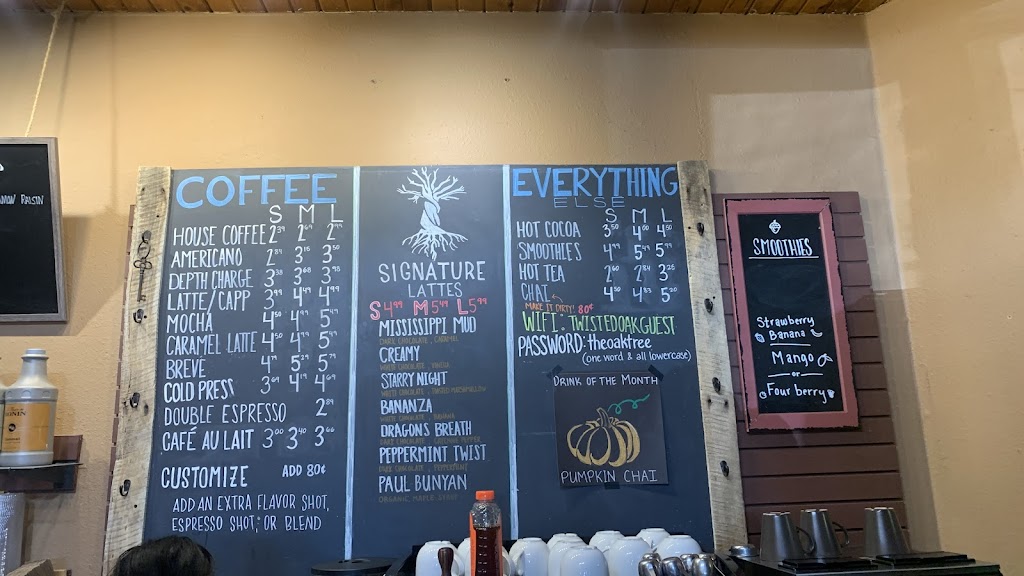 RAISIN
COFFEE
S M L
HOUSE COFFEE 2³⁹ 2⁶⁹ 2⁹⁹
AMERICANO 2⁸⁹ 3¹⁵ 3⁵⁰
DEPTH CHARGE 3³⁸ 3⁶⁸ 3⁹⁸
LATTE/CAPP 3⁹⁹ 4⁴⁹ 4⁹⁹
MOCHA 4⁵⁰ 4⁹⁹ 5⁴⁹
CARAMEL LATTE 4⁵⁰ 4⁹⁹ 5⁴⁹
BREVE
COLD PRESS 3⁶⁹ 4¹⁹ 4⁶⁹
DOUBLE ESPRESSO 2⁸⁹
CAFÉ AU LAIT 3⁰⁰ 3⁴⁰ 3⁶⁰
CUSTOMIZE ADD 80¢
ADD AN EXTRA FLAVOR SHOT,
ESPRESSO SHOT, OR BLEND
SIGNATURE
LATTES
S 4⁹⁹ M 5⁴⁹ L 5⁹⁹
MISSISSIPPI MUD
DARK CHOCOLATE, CARAMEL
CREAMY
WHITE CHOCOLATE, VANILLA
STARRY NIGHT
WHITE CHOCOLATE, TOASTED MARSHMALLOW
BANANZA
WHITE CHOCOLATE, BANANA
DRAGON'S BREATH
DARK CHOCOLATE, CAYENNE PEPPER
PEPPERMINT TWIST
DARK CHOCOLATE, PEPPERMINT
PAUL BUNYAN
ORGANIC MAPLE SYRUP
EVERYTHING
ELSE
S M L
HOT COCOA 3⁵⁰ 4⁰⁰ 4⁵⁰
SMOOTHIES 4⁹⁹ 5⁴⁹ 5⁹⁹
HOT TEA 2⁶⁰ 2⁸⁴ 3²⁶
CHAI 4⁵⁰ 4⁸³ 5²⁰
MAKE IT DIRTY! 80¢
WIFI: TWISTEDOAKGUEST
PASSWORD: theoaktree
(one word & all lowercase)
DRINK OF THE MONTH
PUMPKIN CHAI
SMOOTHIES
Strawberry
Banana
Mango
or
Four berry